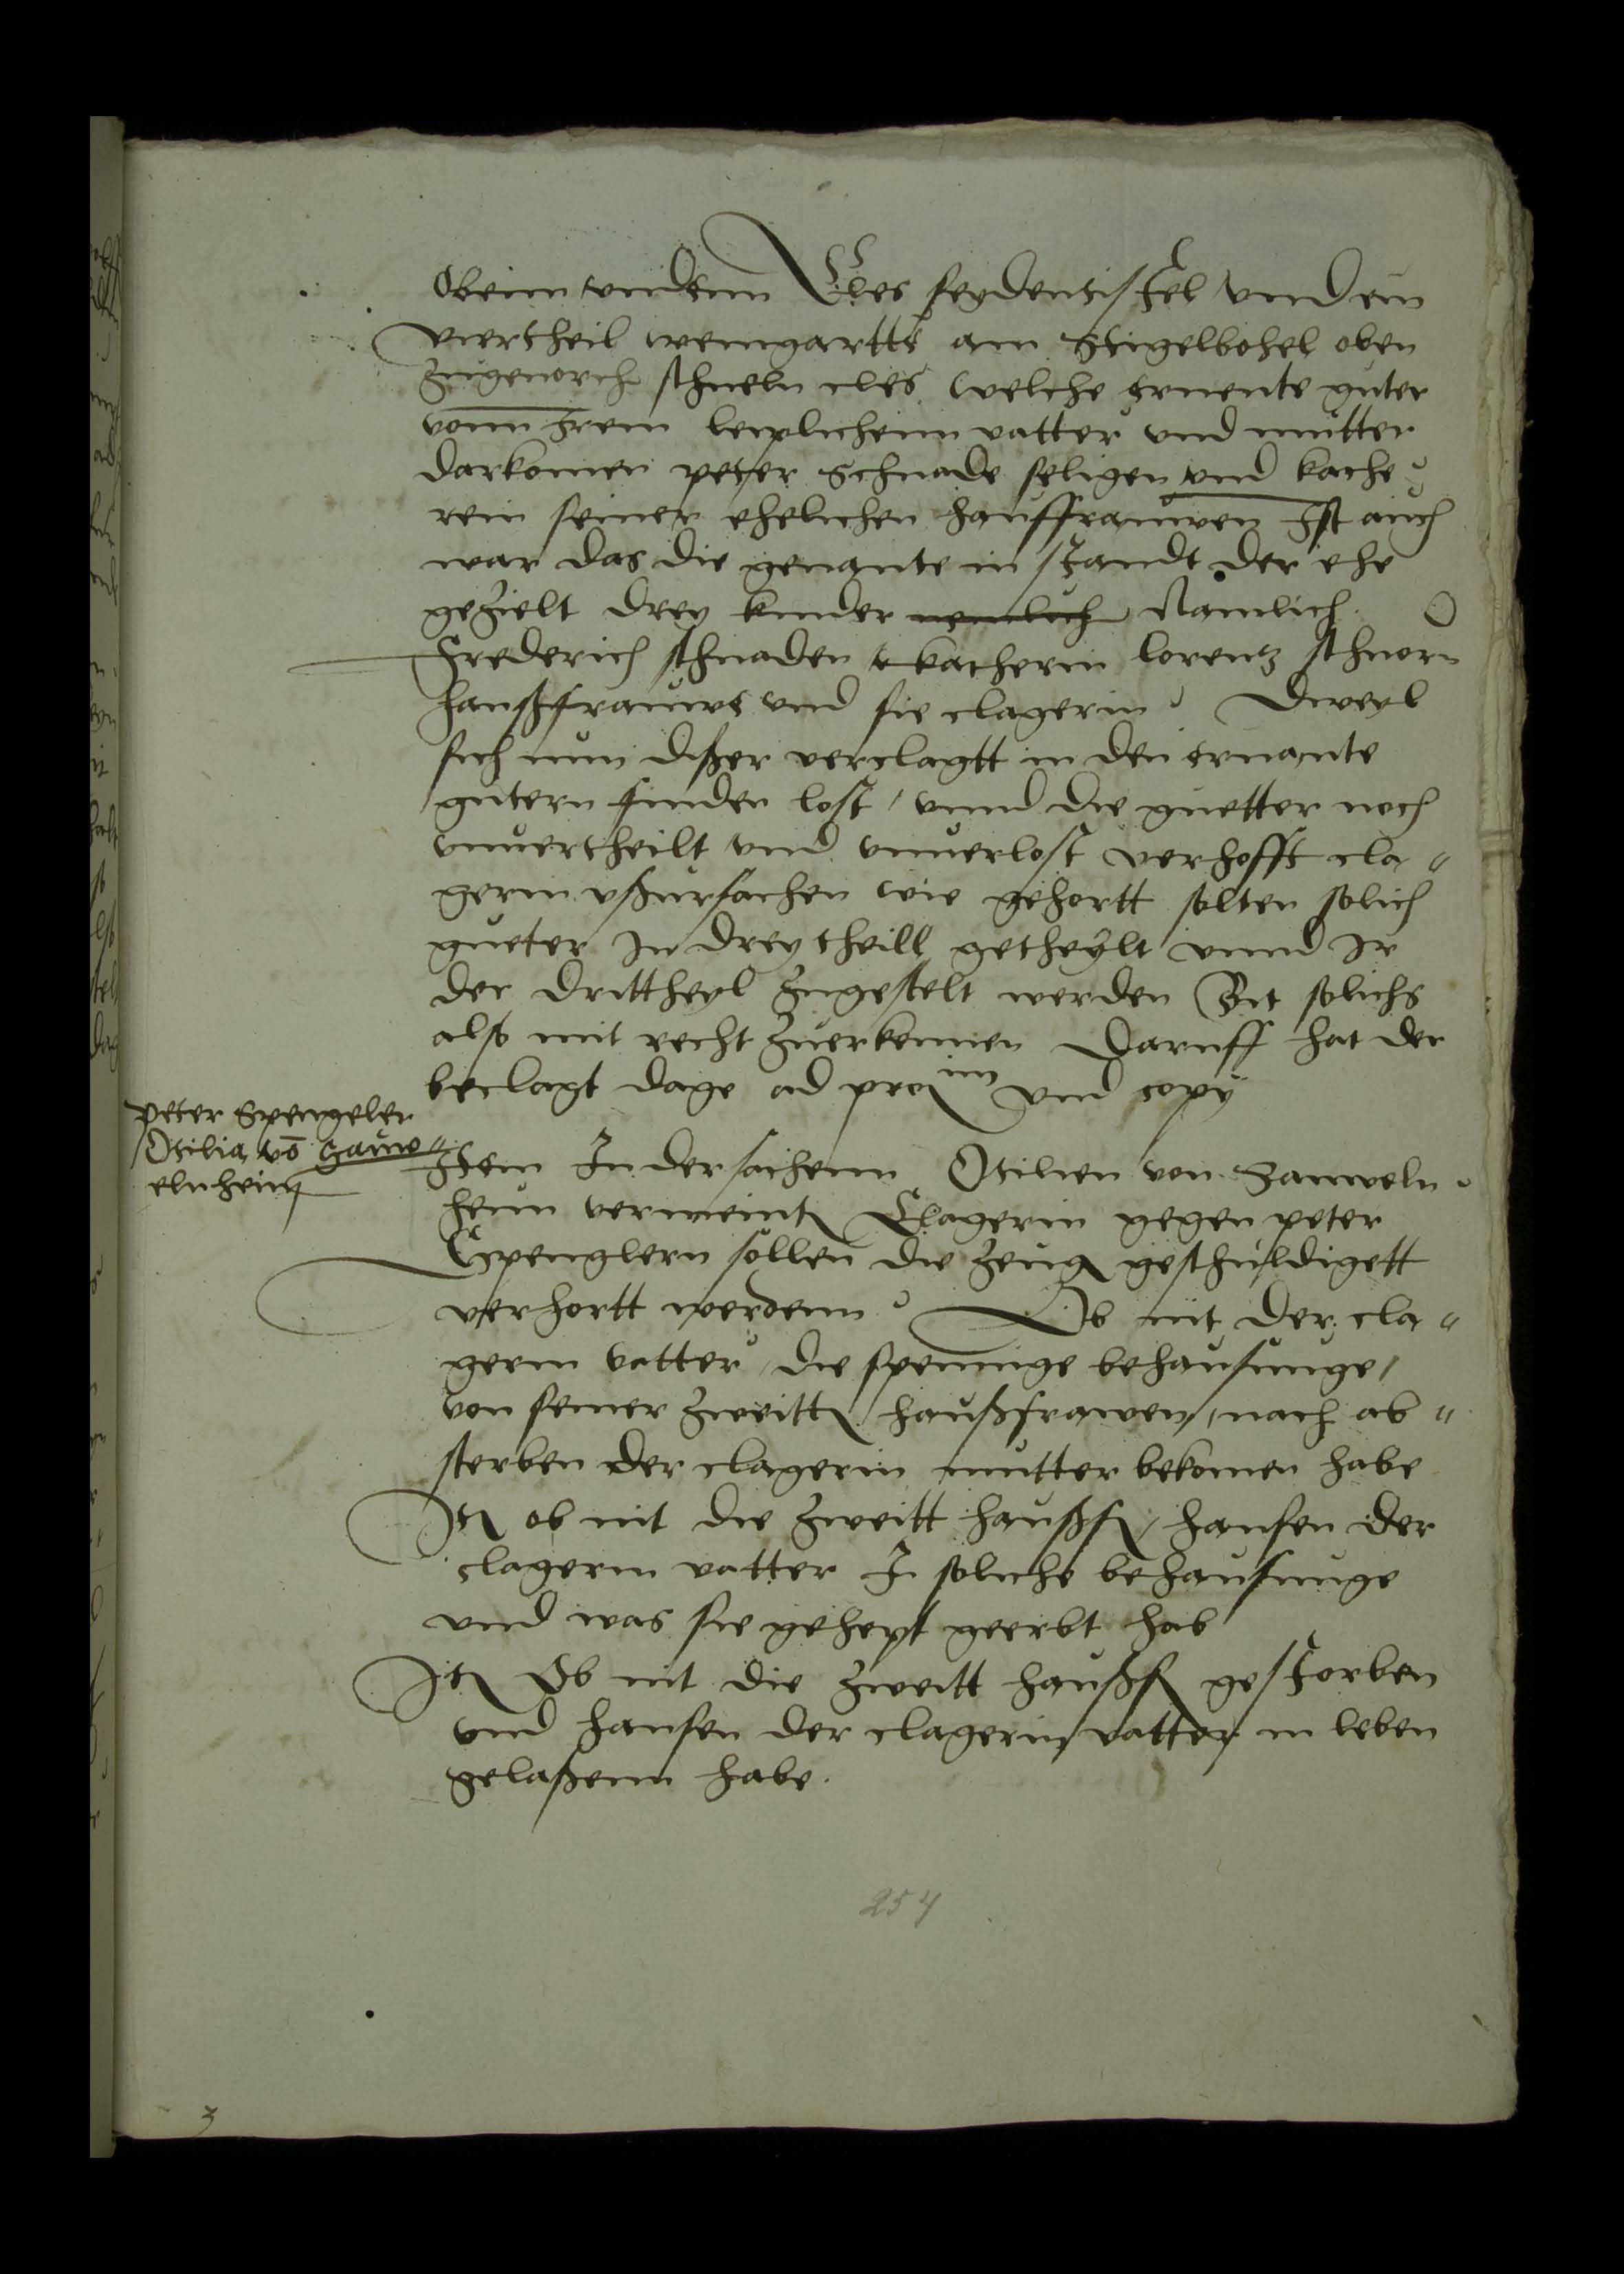 Obenn vndenn Cles seydensistel vnd ein
viertheil wemgartts am Stigelbohel oben
Zugenorch schneln cles welche ernente guter
vonn Irem leyplichenn vatter vnd mutter
darkomen peter Schnade seligen vnd kathe
rein seinen ehelichen hauffrauwen Ist auch
war das die genante in standt der ehe
gezielt drey kinder nemlich Namlich
Frederich schnaden katherin lorentz schnorn
haußfrauwe vnd sie clagerin Dweyl
sich nun dißer verclagtt in den ernante
gutern finden lost / vnnd die guetter noch
vnuertheilt vnd vnuerlost verhofft cla"
gerin vßursachen wie gehortt solten solich
gueter In drey theill getheylt vnnd Ir
der drittheyl zugestelt werden Bit solichs
also mit recht zuerkennen Daruff hat der
beclagt dage ad proxim vnd copy
peter Spengeler
Otilia vō Zauw"
elnheim
Item In der sachenn Otilien von Zauweln
heim vermeint Clagerin gegen peter
Spenglern sollen die zeug geschuldigett
verhortt werdenn Ob nit der cla"
gerin vatter / die spennige behausunge /
von seiner zweitt haußfrawen / nach ab"
sterben der clagerin mutter bekomen habe
It ob nit die zweitt haußf / hansen der
clagerin vatter I soliche behausunge
vnd was sie gehept geerbt hab
It Ob nit die zweitt haußf gestorben
vnd hansen der clagerin vatter in leben
gelaßenn habe.
254
3